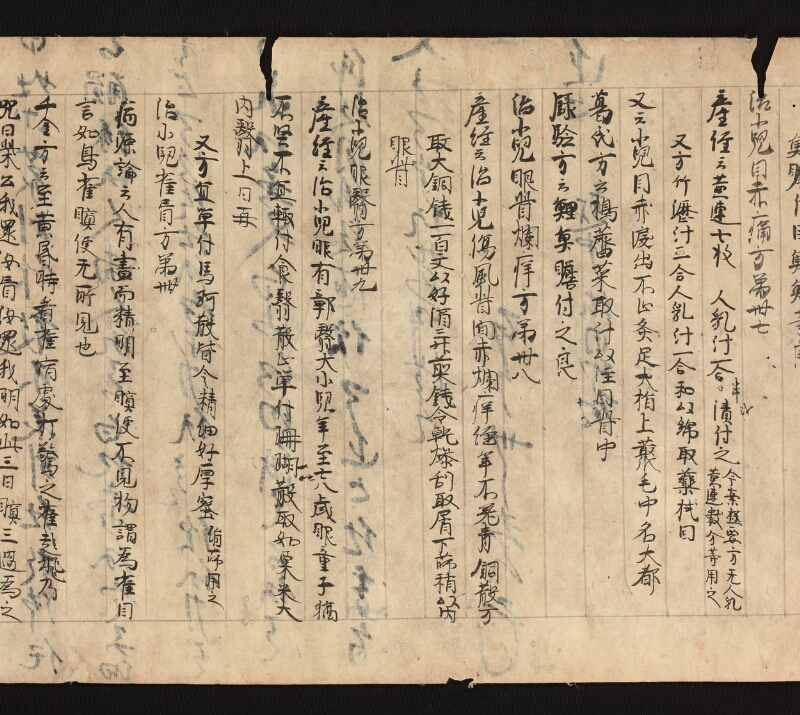 治小兒目赤痛方第卅七
產經云黃連七枚 人乳汁一合 漬付之 今案極要方无人乳黃連數分等用之
又方竹瀝汁三合人乳汁一合和以綿取藥拭目
又云小兒目赤淚出不止灸足大指上藂毛中名大都
葛氏方云 取付以注目眥中
錄驗方云鯉魚膽付之良
治小兒眼眥爛痒方第卅八
產經云治小兒傷風眥肉赤爛痒經年不差青銅散方
取大銅錢一百文以好酒三升煎錢令乾燥刮取屑下篩稍以內
眼眥
治小兒眼翳方第卅九
產經云治小兒眼有 翳大小兒年至七八歲眼童子
不堅不宜輒付食翳散止單付珊瑚散取如粟米大
內翳上日再
又方宜單付馬珂散皆令精細好厚蜜 用之
治小兒雀目方第卌
病源論云人有晝而精明至瞑便不見物謂為雀目
言如鳥雀瞑便无所見也
千金方云至黃昏時看雀宿處打驚之雀起飛乃
咒曰柴公我還汝盲汝還我明如此三日瞑三過為之